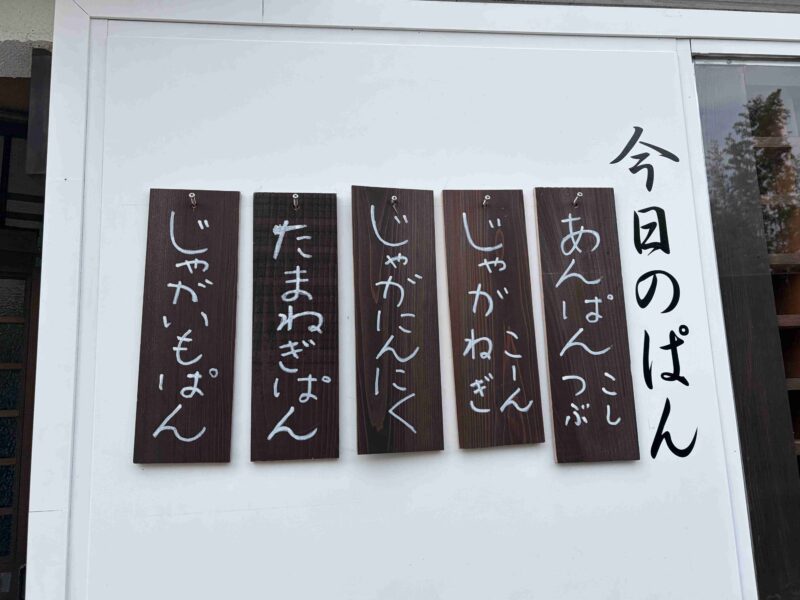 今日のぱん
あんぱん
こし
つぶ
じゃがねぎ
こーん
じゃがにんにく
たまねぎぱん
じゃがいもぱん